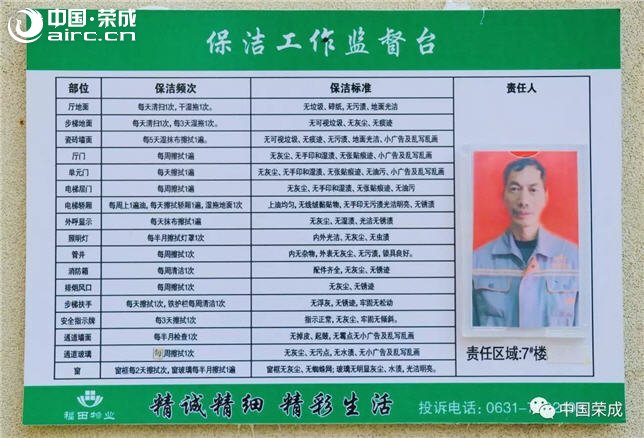 中国·荣成
airc.cn
保洁工作监督台
部位 保洁频次 保洁标准 责任人
厅地面 每天清扫1次，干湿拖1次。 无垃圾、碎纸，无污渍、地面光洁
步梯地面 每天清扫1次，每3天湿拖1次。 无可视垃圾、无灰尘、无痕迹
瓷砖墙面 每5天湿抹布擦拭1遍。 无可视垃圾、无痕迹、无污渍、地面光洁、小广告及乱写乱画
厅门 每周擦拭1遍 无灰尘、无手印和湿渍、无张贴痕迹、小广告及乱写乱画
单元门 每天擦拭1遍 无灰尘、无手印和湿渍、无张贴痕迹、无油污、小广告及乱写乱画
电梯层门 每周擦拭1遍 无灰尘、无手印、无湿渍、无张贴痕迹、无油污
电梯轿厢 每周上1遍油，每天擦拭轿厢1遍，湿拖地面1次 上油均匀、无线绒黏贴物、无手印无污渍光洁明亮、无锈渍
外呼显示 每天抹布擦拭1遍 无灰尘、无湿渍、光洁无锈渍
照明灯 每半月擦拭灯罩1次 内外光洁、无灰尘、无虫渍
管井 每周擦拭1次 内无杂物，外表无灰尘、无污渍，锁具良好。
消防箱 每周清洁1次 配件齐全，无灰尘、无锈迹
排烟风口 每周擦拭1次 无灰尘、无锈迹
步梯扶手 每天擦拭1次，铁护栏每周清洁1次 无浮灰、无锈迹，牢固无松动
安全指示牌 每3天擦拭1次 指示正常，无灰尘、牢固无倾斜。
通道墙面 每半月检查1次 无掉皮、起皱，无霉点无小广告及乱写乱画
通道玻璃 每周擦拭1次 无灰尘、无污点，无水渍、无小广告及乱写乱画
窗 窗框每2天擦拭1次，窗玻璃每半月擦拭1遍 窗框无灰尘、无蜘蛛网；玻璃无明显灰尘、水渍，光洁明亮。
责任区域:7#楼
福田物业
精诚精细 精彩生活
投诉电话：0631-7
中国荣成